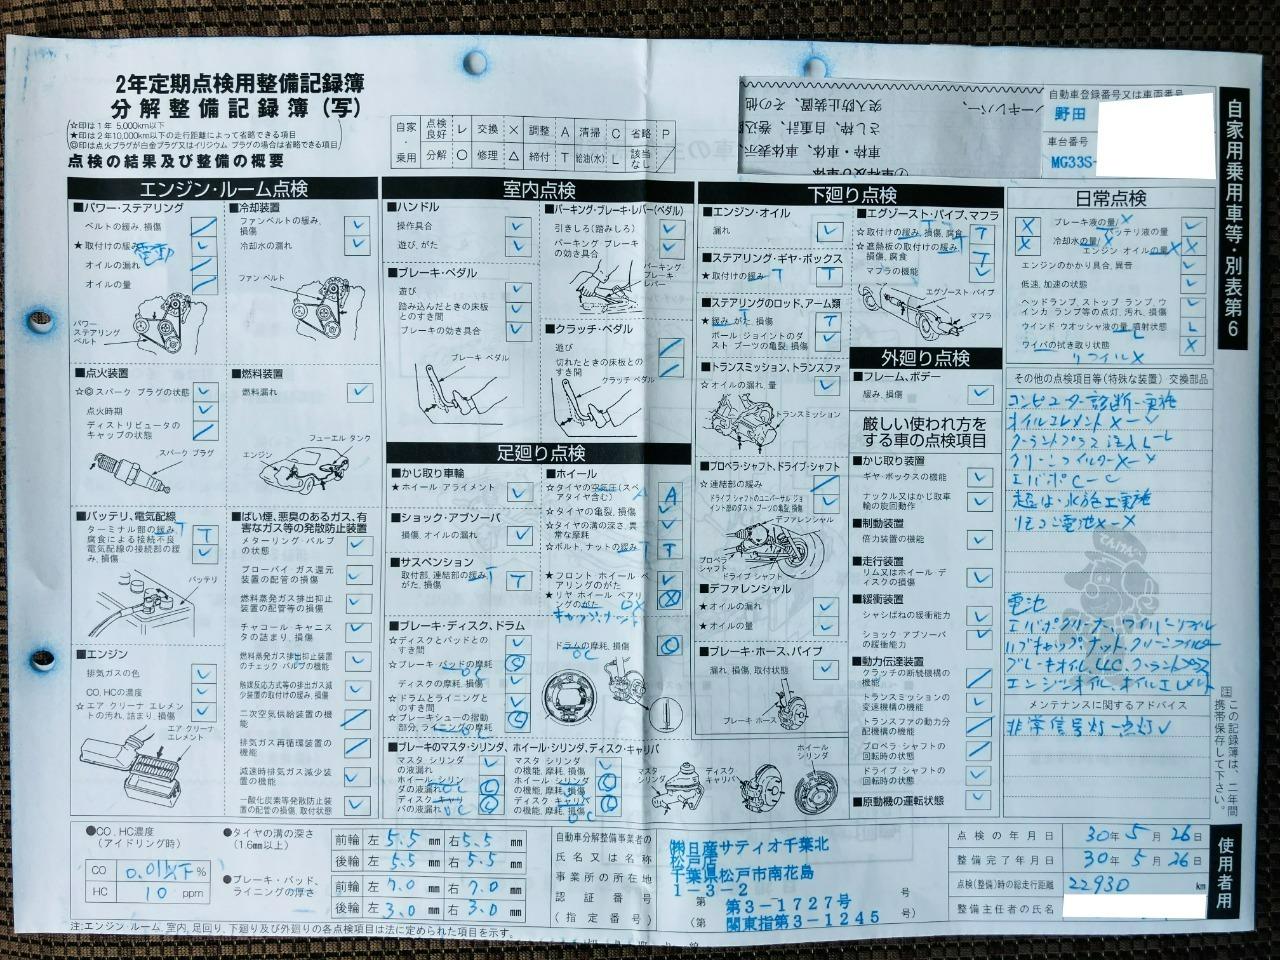 2年定期点検用整備記録簿
分解整備記録簿(写)
☆印は1年 5,000km以下
★印は2年10,000km以下の走行距離によって省略できる項目
◎印は点火プラグが白金プラグ又はイリジウム プラグの場合は省略できる項目
点検の結果及び整備の概要
自家・乗用
点検良好 レ 交換 × 調整 A 清掃 C 省略 P
分解 ○ 修理 △ 締付 T 給油(水) L 該当なし /
自動車登録番号又は車両番号
野田
車台番号
MG33S-
自家用乗用車等・別表第6
エンジン・ルーム点検
■パワー・ステアリング
ベルトの緩み、損傷
★取付けの緩み
電動
オイルの漏れ
オイルの量
パワー・ステアリング ベルト
■冷却装置
ファンベルトの緩み、損傷
冷却水の漏れ
ファン ベルト
■点火装置
☆◎スパーク プラグの状態
点火時期
ディストリビュータのキャップの状態
スパーク プラグ
■燃料装置
燃料漏れ
フューエル タンク
エンジン
■バッテリ、電気配線
ターミナル部の緩み、腐食による接続不良
電気配線の接続部の緩み、損傷
バッテリ
■ばい煙、悪臭のあるガス、有害なガス等の発散防止装置
メターリング バルブの状態
ブローバイ ガス還元装置の配管の損傷
燃料蒸発ガス排出抑止装置の配管等の損傷
チャコール キャニスタの詰まり、損傷
燃料蒸発ガス排出抑止装置のチェック バルブの機能
触媒反応方式等の排出ガス減少装置の取付けの緩み、損傷
二次空気供給装置の機能
排気ガス再循環装置の機能
減速時排気ガス減少装置の機能
一酸化炭素等発散防止装置の配管の損傷、取付状態
■エンジン
排気ガスの色
CO、HCの濃度
☆エア クリーナ エレメントの汚れ、詰まり、損傷
エア クリーナ エレメント
室内点検
■ハンドル
操作具合
遊び、がた
■ブレーキ・ペダル
遊び
踏み込んだときの床板とのすき間
ブレーキの効き具合
ブレーキ ペダル
■パーキング・ブレーキ・レバー(ペダル)
引きしろ(踏みしろ)
パーキング ブレーキの効き具合
パーキング ブレーキ レバー
■クラッチ・ペダル
遊び
切れたときの床板とのすき間
クラッチ ペダル
足廻り点検
■かじ取り車輪
★ホイール アライメント
■ショック・アブソーバ
損傷、オイルの漏れ
■サスペンション
取付部、連結部の緩み、がた、損傷
■ホイール
☆タイヤの空気圧(スペアタイヤ含む)
☆タイヤの亀裂、損傷
☆タイヤの溝の深さ、異常な摩耗
☆ボルト、ナットの緩み
★フロント ホイール ベアリングのがた
★リヤ ホイール ベアリングのがた
キャップ、ナット
■ブレーキ・ディスク、ドラム
☆ディスクとパッドとのすき間
☆ブレーキ・パッドの摩耗
ディスクの摩耗、損傷
☆ドラムとライニングとのすき間
☆ブレーキシューの摺動部分、ライニングの摩耗
ドラムの摩耗、損傷
■ブレーキのマスタ・シリンダ、ホイール・シリンダ、ディスク・キャリパ
マスタ シリンダの液漏れ
ホイール シリンダの液漏れ
ディスク キャリパの液漏れ
マスタ シリンダの機能、摩耗、損傷
ホイール シリンダの機能、摩耗、損傷
ディスク キャリパの機能、摩耗、損傷
マスタ シリンダ
ディスク キャリパ
ホイール シリンダ
下廻り点検
■エンジン・オイル
漏れ
■ステアリング・ギヤ・ボックス
★取付けの緩み
■ステアリングのロッド、アーム類
★緩み、がた、損傷
ボール ジョイントのダスト ブーツの亀裂、損傷
■トランスミッション、トランスファ
☆オイルの漏れ、量
トランスミッション
■プロペラ・シャフト、ドライブ・シャフト
☆連結部の緩み
ドライブ シャフトのユニバーサル ジョイント部のダスト ブーツの亀裂、損傷
デファレンシャル
プロペラ シャフト
ドライブ シャフト
■デファレンシャル
★オイルの漏れ
★オイルの量
■ブレーキ・ホース、パイプ
漏れ、損傷、取付状態
ブレーキ ホース
■エグゾースト・パイプ、マフラ
☆取付けの緩み、損傷、腐食
☆遮熱板の取付けの緩み、損傷、腐食
マフラの機能
エグゾースト パイプ
マフラ
外廻り点検
■フレーム、ボデー
緩み、損傷
厳しい使われ方をする車の点検項目
■かじ取り装置
ギヤ・ボックスの機能
ナックル又はかじ取車輪の旋回動作
■制動装置
倍力装置の機能
■走行装置
リム又はホイール ディスクの損傷
■緩衝装置
シャシばねの緩衝能力
ショック アブソーバの緩衝能力
■動力伝達装置
クラッチの断続機構の機能
トランスミッションの変速機構の機能
トランスファの動力分配機構の機能
プロペラ・シャフトの回転時の状態
ドライブ・シャフトの回転時の状態
■原動機の運転状態
日常点検
ブレーキ液の量
バッテリ液の量
冷却水の量
エンジン オイルの量
エンジンのかかり具合、異音
低速、加速の状態
ヘッドランプ、ストップ ランプ、ウインカ ランプ等の点灯、汚れ、損傷
ウインド ウオッシャ液の量、噴射状態
ワイパの拭き取り状態
リフィルX
その他の点検項目等(特殊な装置) 交換部品
コンピューター診断ー実施
オイルエレメントX
クーラントプラス注入L
クリーンフィルターX
エバポC
超は・水施工実施
リモコン電池X
てんけんくん
電池
エバポクリーナー、ワイパーリフィル
ハブキャップ、ナット、クリーンフィルター
ブレーキオイル、LLC、クーラントプラス
エンジンオイル、オイルエレメント
メンテナンスに関するアドバイス
非常信号灯ー点灯レ
注 この記録簿は、二年間携帯保存して下さい。
使用者用
●CO、HC濃度(アイドリング時)
CO 0.01以下 %
HC 10 ppm
●タイヤの溝の深さ(1.6mm以上)
前輪 左 5.5 mm 右 5.5 mm
後輪 左 5.5 mm 右 5.5 mm
●ブレーキ・パッド、ライニングの厚さ
前輪 左 7.0 mm 右 7.0 mm
後輪 左 3.0 mm 右 3.0 mm
注:エンジン・ルーム、室内、足廻り、下廻り及び外廻りの各点検項目は法に定められた項目を示す。
自動車分解整備事業者の
氏名又は名称
事業所の所在地
認証番号
(指定番号)
(株)日産サティオ千葉北
松戸店
千葉県松戸市南花島
1-3-2 号
第 第3-1727号
(第 関東指第3-1245 号)
点検の年月日 30年 5月 26日
整備完了年月日 30年 5月 26日
点検(整備)時の総走行距離 22930 km
整備主任者の氏名